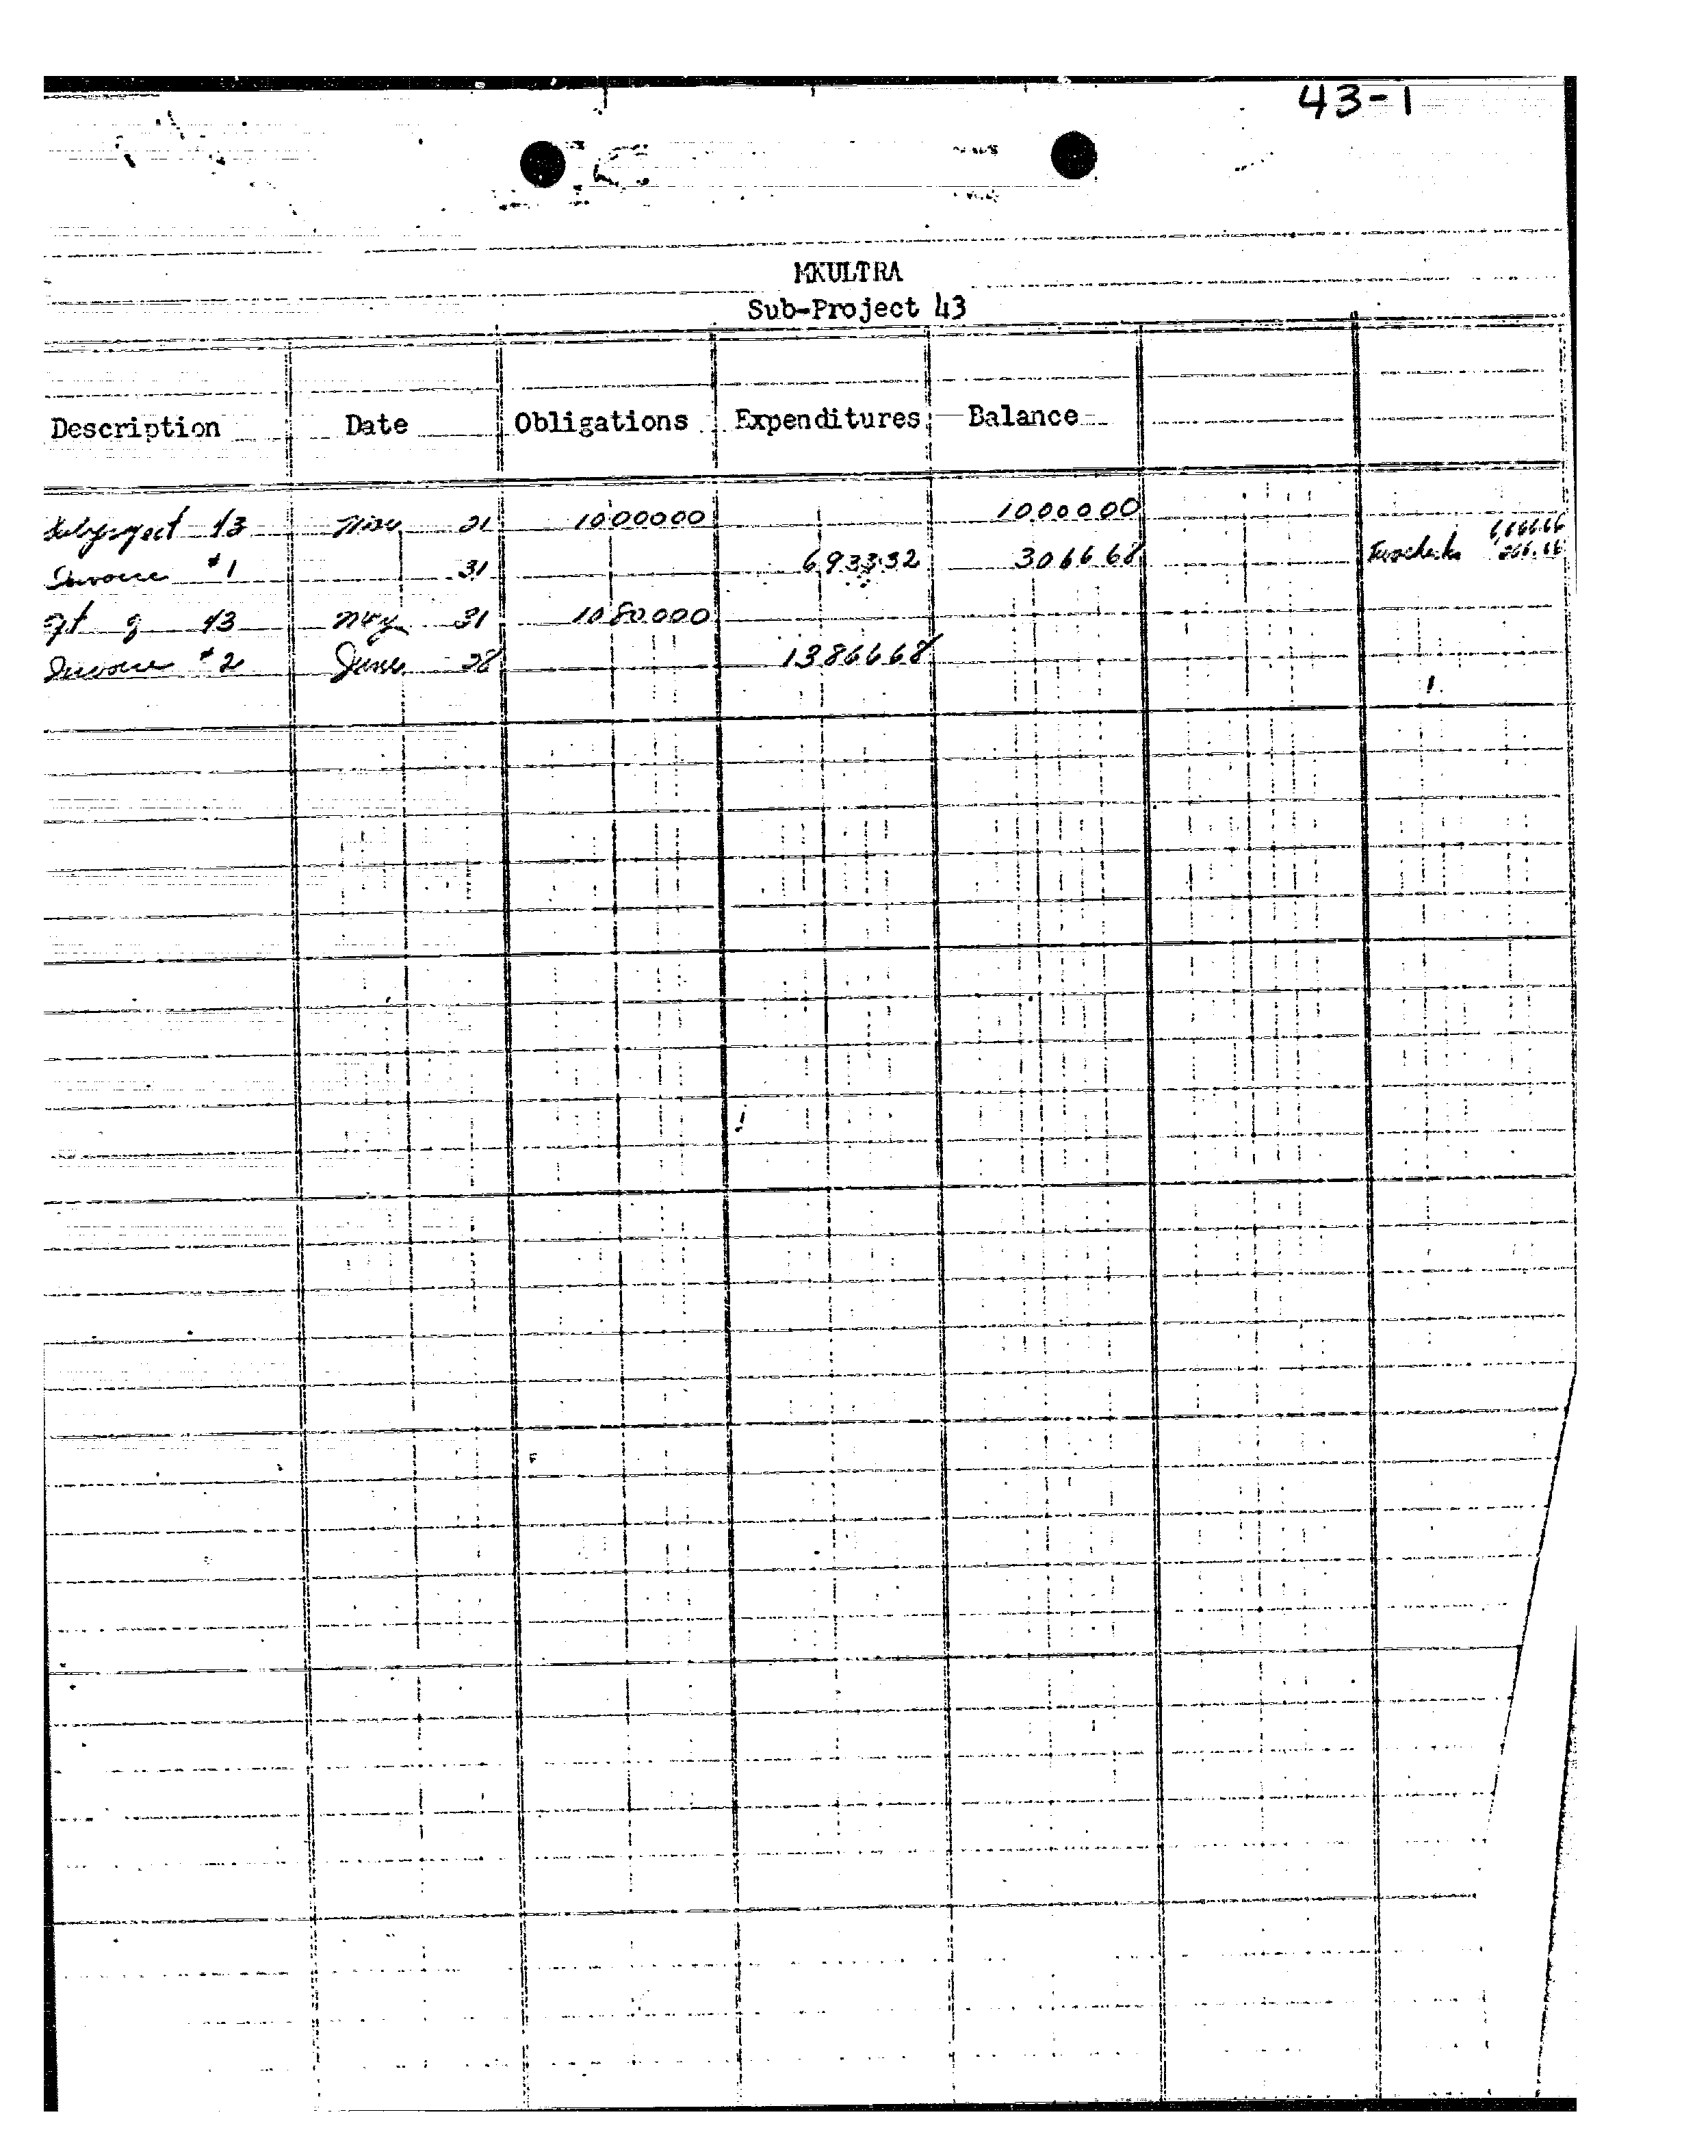 43-1
MKULTRA
Sub-Project 43
Description Date Obligations Expenditures Balance
Subproject 43 21 1000000 1000000
Invoice #1 31 693332 306668 Two checks 6,666.66 266.66
43 May 31 1080000
Invoice #2 June 28 1386668